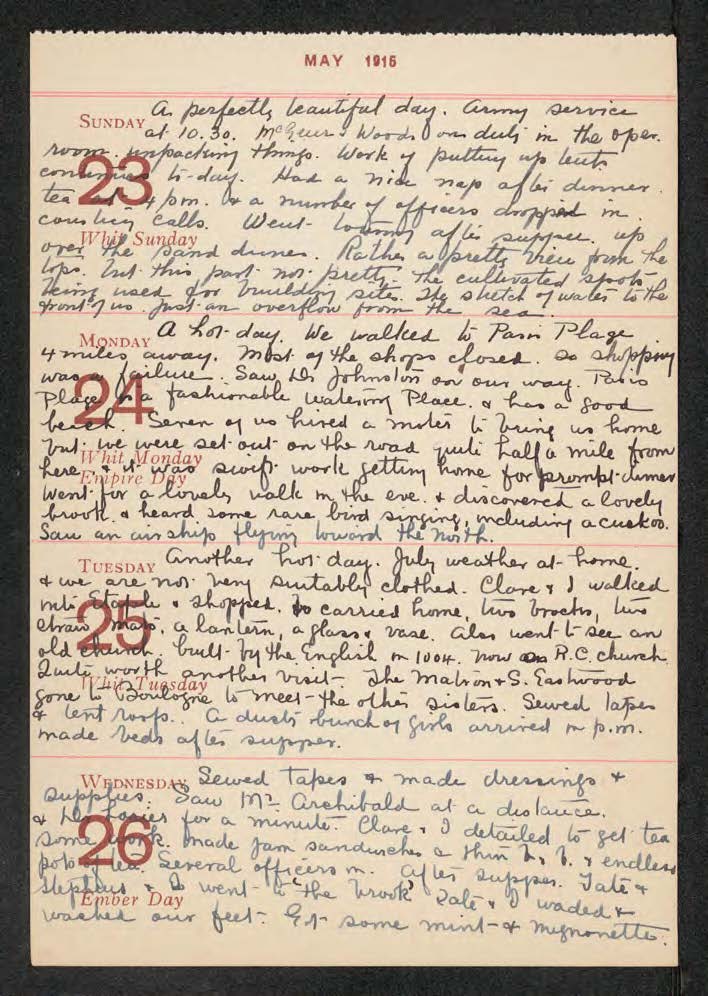 MAY 1915
SUNDAY A perfectly beautiful day. Army service
at 10.30. & Woods on duty in the oper.
room unpacking things. Work of putting up tents
23
continues to-day. Had a nice nap after dinner.
tea at 4 p.m. & a number of officers dropped in
courtesy calls. Went after supper, up
Whit Sunday
over the sand dunes. Rather a pretty view from the
tops. but this part not pretty. The cultivated spots
being used for building sites. The stretch of water to the
front of us just an overflow from the sea.
MONDAY A hot day. We walked to Paris Plage
4 miles away. Most of the shops closed. so shopping
was a failure. Saw Dr Johnston on our way. Paris
24
Plage is a fashionable Watering Place. & has a good
beach. Seven of us hired a motor to bring us home
but we were set out on the road quite half a mile from
Whit Monday
here, & it was swift work getting home for prompt dinner
Empire Day
Went for a lovely walk in the eve. & discovered a lovely
brook. & heard some rare bird singing, including a cuckoo.
Saw an airship flying toward the North.
TUESDAY Another hot day. July weather at home.
& we are not very suitably clothed. Clare & I walked
into Etaple & shopped. carried home, two brocks, two
25
straw mats, a lantern, a glass & vase. Also went to see an
old church. built by the English in 1004. now R.C. church.
Quite worth another visit. The Matron & S. Eastwood
Whit Tuesday
gone to Boulogne to meet the other sisters. Sewed tapes
& tent roofs. A dusty bunch of girls arrived in p.m.
made beds after supper.
WEDNESDAY Sewed tapes & made dressings &
supplies. Saw Mr. Archibald at a distance.
& Dr for a minute. Clare & I detailed to get tea
26
some work. made jam sandwiches & thin b. & b. & endless
pots of tea. Several officers in. After supper. Tate &
Stephens & I went to the brook. Tate & I waded &
Ember Day
washed our feet. Got some mint & mignonette.